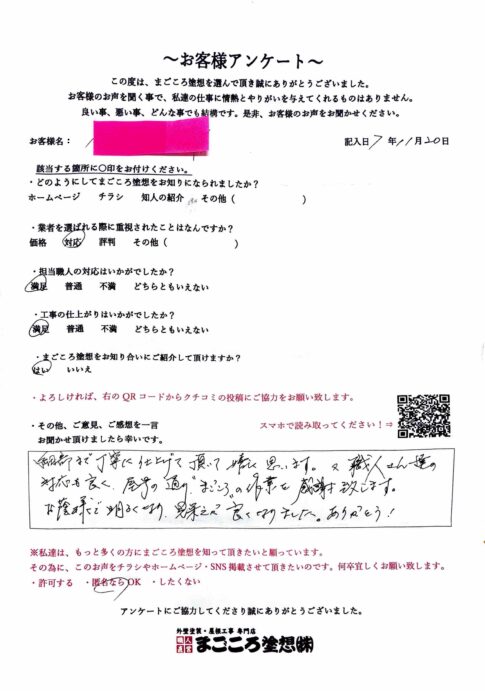 ～お客様アンケート～
この度は、まごころ塗想を選んで頂き誠にありがとうございました。
お客様のお声を聞く事で、私達の仕事に情熱とやりがいを与えてくれるものはありません。
良い事、悪い事、どんな事でも結構です。是非、お客様のお声をお聞かせください。
お客様名： 記入日 7 年 11 月 20 日
該当する箇所に〇印をお付けください。
・どのようにしてまごころ塗想をお知りになられましたか？
ホームページ チラシ 知人の紹介 その他（ ）
・業者を選ばれる際に重視されたことはなんですか？
価格 対応 評判 その他（ ）
・担当職人の対応はいかがでしたか？
満足 普通 不満 どちらともいえない
・工事の仕上がりはいかがでしたか？
満足 普通 不満 どちらともいえない
・まごころ塗想をお知り合いにご紹介して頂けますか？
はい いいえ
・よろしければ、右のQRコードからクチコミの投稿にご協力をお願い致します。
・その他、ご意見、ご感想を一言 スマホで読み取ってください！⇒
お聞かせ頂けましたら幸いです。
細部まで丁寧に仕上げて頂いて嬉しく思います。又職人さん達の
対応も良く、屋号の通り"まごころ"の作業を感謝致します。
お蔭様で明るくなり、見栄えが良くなりました。ありがとう！
※私達は、もっと多くの方にまごころ塗想を知って頂きたいと願っています。
その為に、このお声をチラシやホームページ・SNS掲載させて頂きたいのです。何卒宜しくお願い致します。
・許可する ・匿名ならOK ・したくない
アンケートにご協力してくださり誠にありがとうございました。
外壁塗装・屋根工事 専門店
職人直営 まごころ塗想㈱